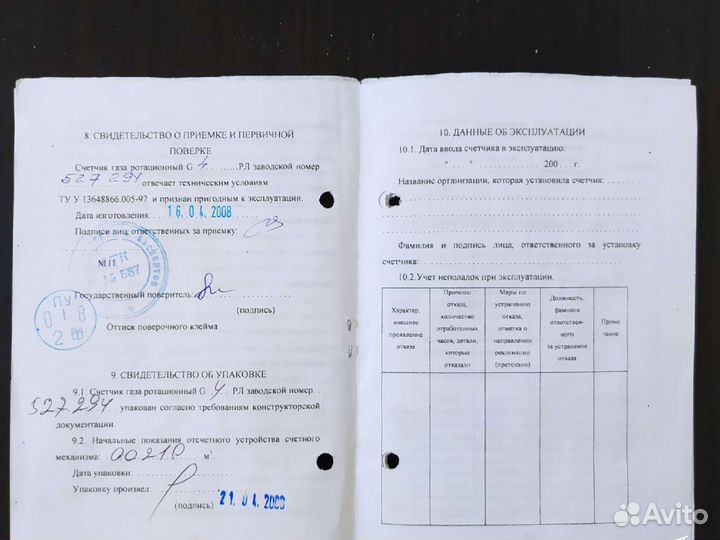 8. СВИДЕТЕЛЬСТВО О ПРИЕМКЕ И ПЕРВИЧНОЙ
ПОВЕРКЕ
Счетчик газа ротационный G 4 ......РЛ заводской номер
527294 отвечает техническим условиям
ТУ У 13648866.005-97 и признан пригодным к эксплуатации.
Дата изготовления: 16.04.2008
Подписи лиц, ответственных за приемку:
М.П.
Государственный поверитель:
(подпись)
Оттиск поверочного клейма
9. СВИДЕТЕЛЬСТВО ОБ УПАКОВКЕ
9.1. Счетчик газа ротационный G 4 РЛ заводской номер
527294 упакован согласно требованиям конструкторской
документации.
9.2. Начальные показания отсчетного устройства счетного
механизма: м³
Дата упаковки:
Упаковку произвел:
(подпись)
21.04.2008
10. ДАННЫЕ ОБ ЭКСПЛУАТАЦИИ
10.1. Дата ввода счетчика в эксплуатацию:
" . . . " ................. 200 . . . г.
Название организации, которая установила счетчик:
Фамилия и подпись лица, ответственного за установку
счетчика:
10.2.Учет неполадок при эксплуатации.
Характер,
внешнее
проявление
отказа
Причины
отказа,
количество
отработанных
часов, детали,
которые
отказали
Меры по
устранению
отказа,
отметка о
направлении
рекламации
(претензии)
Должность,
фамилия
ответствен-
ного
за устранение
отказа
Приме
чание
Avito